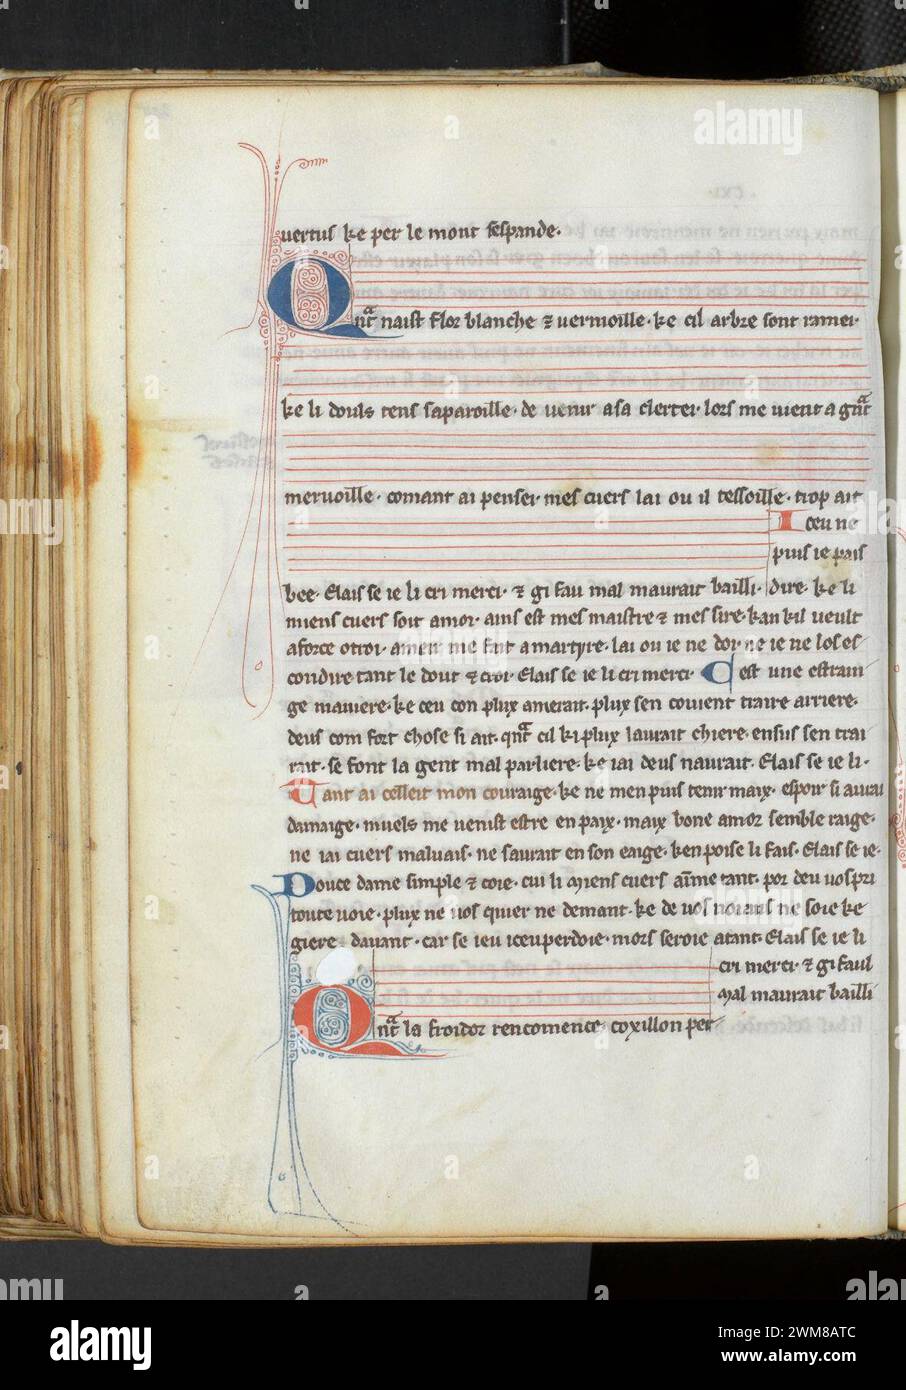 uertus ke per le mont sespande.
Qnt naist flor blanche ⁊ vermoille. ke cil arbre sont ramei
ke li douls tens saparoille. de venir a sa clertei. lors me vient a gnt
mervoille. comant ai pensei. mes cuers lai ou il tessoille. trop ait
bee. Mais se ie li cri merci. ⁊ gi fau mal maurait bailli.
I ceu ne
puis ie pais
dire. ke li
miens cuers soit amor. ains est mes maistre ⁊ mes sire. kan kil veult
a force otroi. ameir me fait a martyre. lai ou ie ne doi. ne ie ne los es
condire tant le dout ⁊ croi. Mais se ie li cri merci. Cest une estrain
ge maniere. ke ceu con plux amerait. plux sen couient traire arriere.
deus com fort chose si ait. qnt cil ki plux laurait chiere. ensus sen trai
rait. se font la gent mal parliere. ke iai deus naurait. Mais se ie li.
Tant ai celleit mon couraige. ke ne men puis tenir maix. espoir si aurai
damaige. muels me venist estre en paix. maix bone amor semble raige.
ne iai cuers malvais. ne saurait en son eaige. ken poise li fais. Mais se ie.
Douce dame simple ⁊ coie. cui li miens cuers aime tant. por deu vos pri
toute voie. plux ne vos quier ne demant. ke de vos noiaus ne soie ke
giere davant. car se ieu iceu perdoie. mors seroie atant. Mais se ie li
cri merci. ⁊ gi faul
Mal maurait bailli
Qnt la froidor rencomence. coxillon per
alamy
Image ID: 2WM8ATC
www.alamy.com